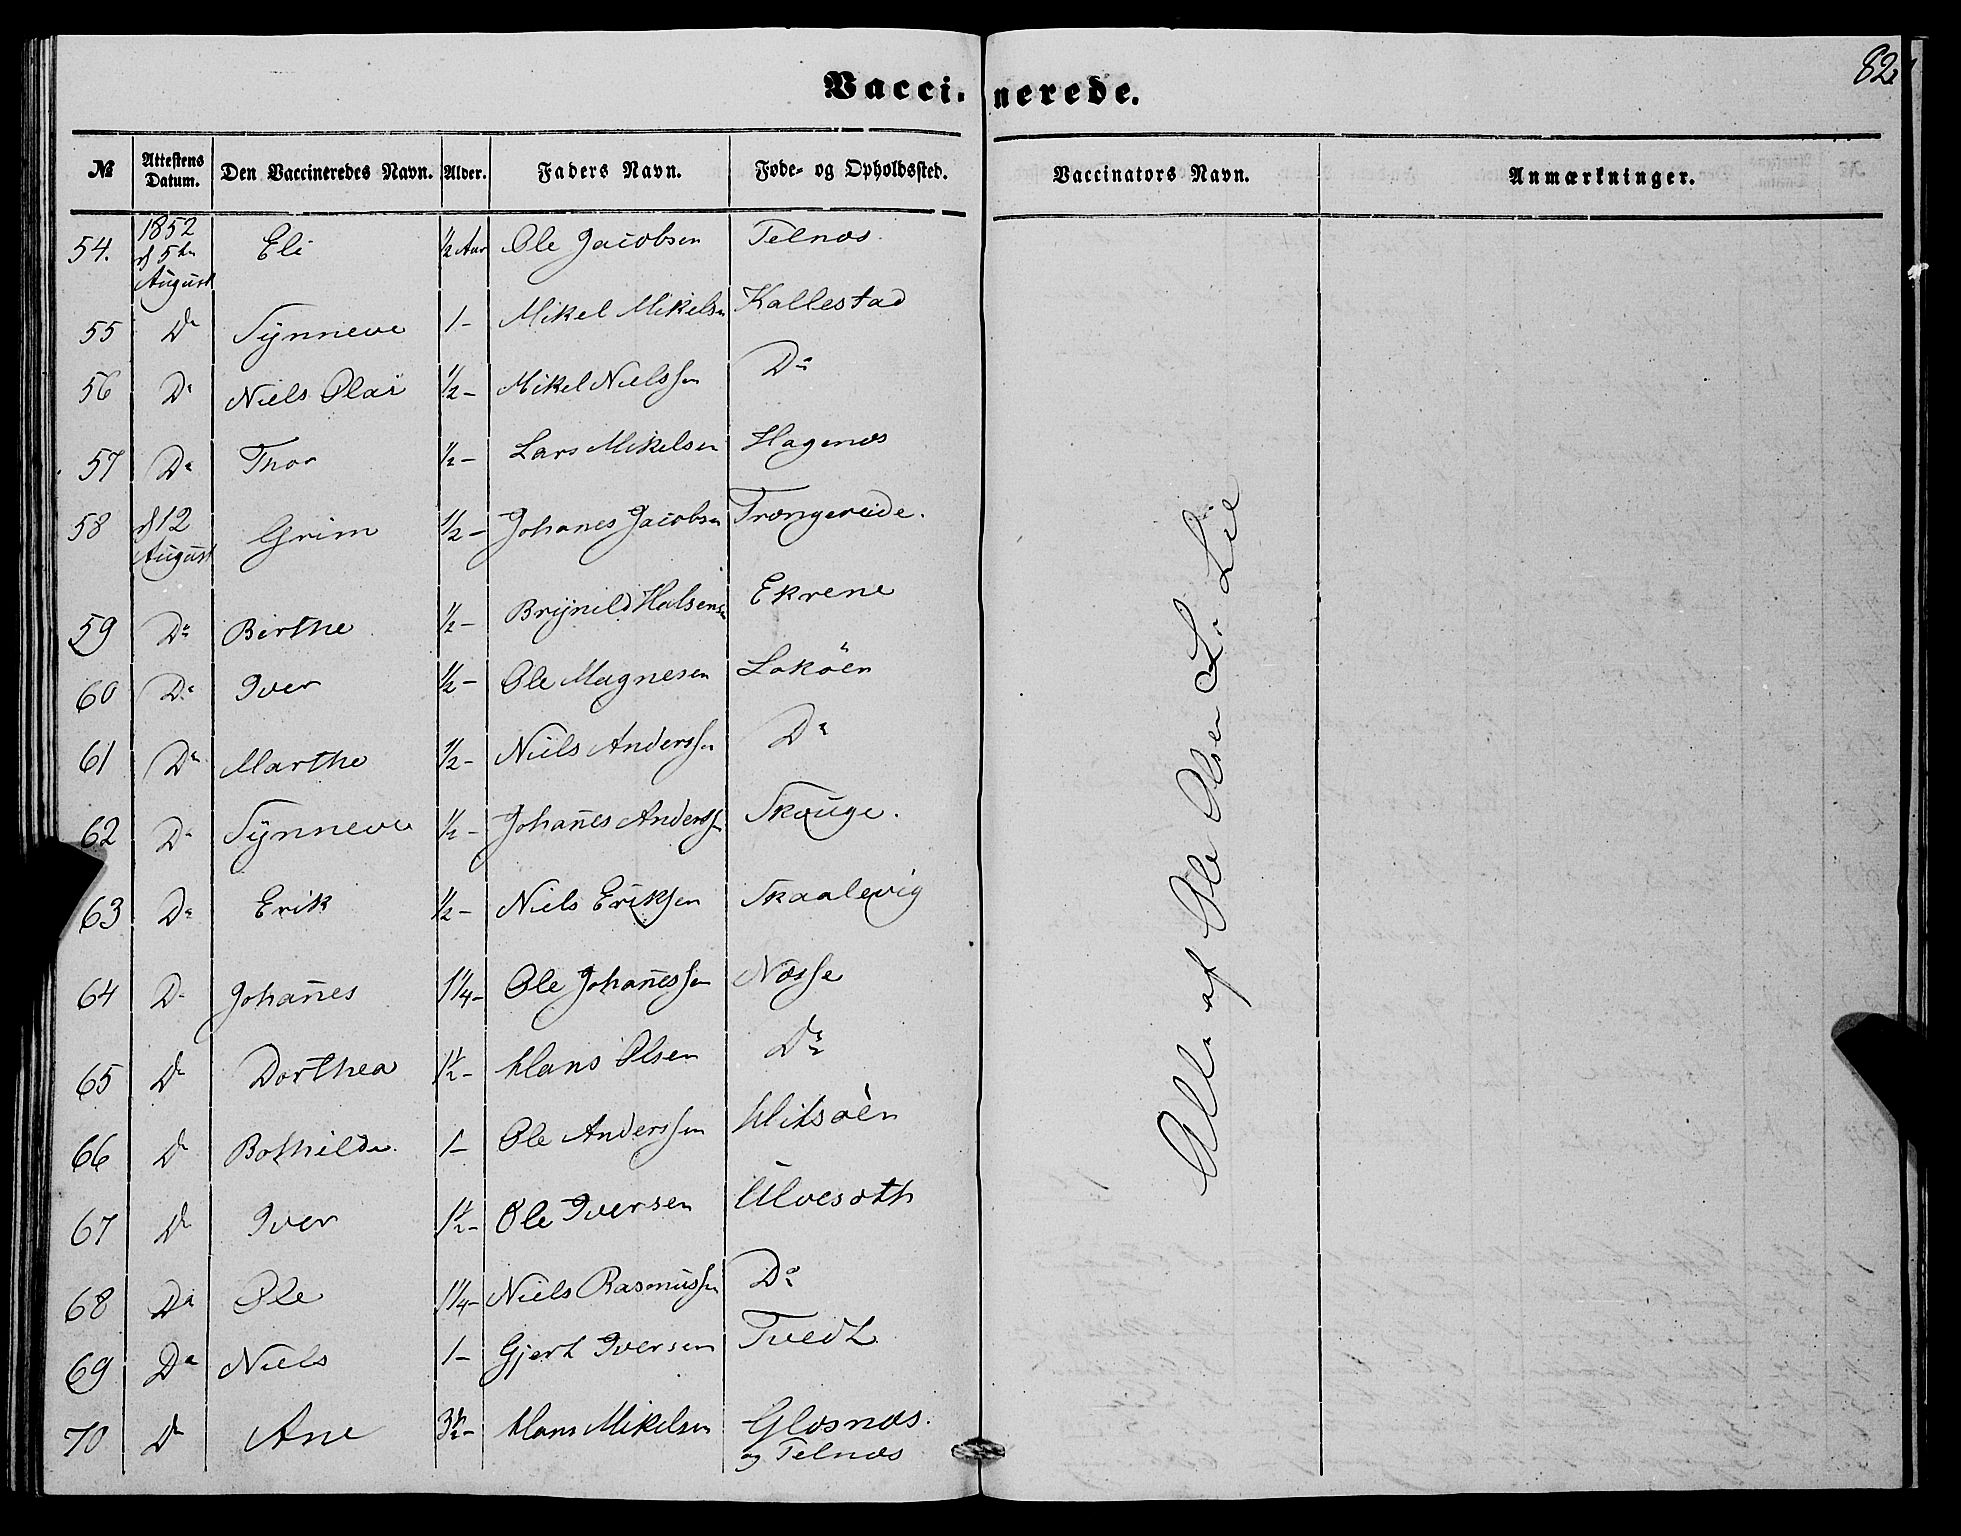 82
Vaccinerede.
№ Attestens Datum. Den Vaccineredes Navn. Alder. Faders Navn. Føde- og Opholdssted. Vaccinators Navn. Anmærkninger.
54. 1852 d 5te August Eli ½ Aar Ole Jacobsen Telnæs.
55 Do Synneve 1- Mikel Mikelsen Kallestad
56 Do Niels Olai ½- Mikel Nielssen Do
57 Do Thor ½- Lars Mikelsen Hagenæs
58 d 12 August Grim ½- Johanes Jacobsen Trængereide.
59 Do Birthe ½- Brynild Halsensen Ekrene
60 Do Iver ½- Ole Magnesen Lokøen
61 Do Marthe ½- Niels Anderssen Do
62 Do Synneve ½- Johanes Anderssen Skouge.
63 Do Erik ½- Niels Eriksen Skaalevig
64 Do Johanes 1¼- Ole Johanessen Næsse
65 Do Dorthea 1½- Hans Olsen Do
66 Do Bothilda 1- Ole Anderssen Hitsøen
67 Do Iver 1½- Ole Iversen Ulvesæth
68 Do Ole 1¼- Niels Rasmussen Do
69 Do Niels 1- Gjert Iversen Tvedt
70 Do Ane 3½- Hans Mikelsen Glæsnæs.
og Telnæs
Alle af Ole Olsen L. Lie